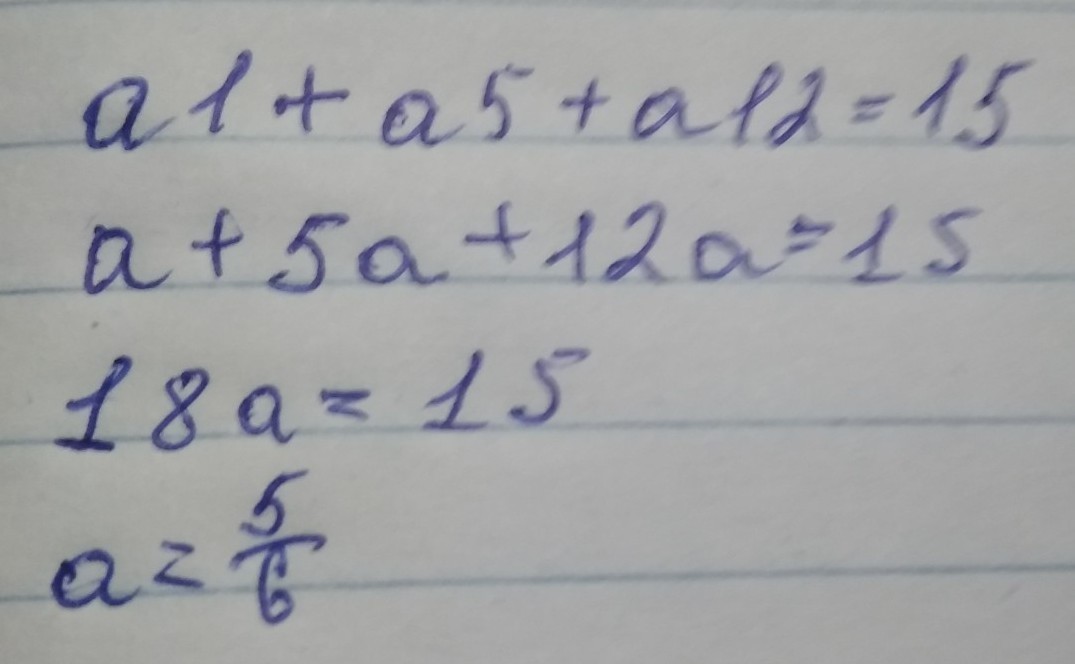 a1+a5+a12=15
a+5a+12a=15
18a=15
a=5/6